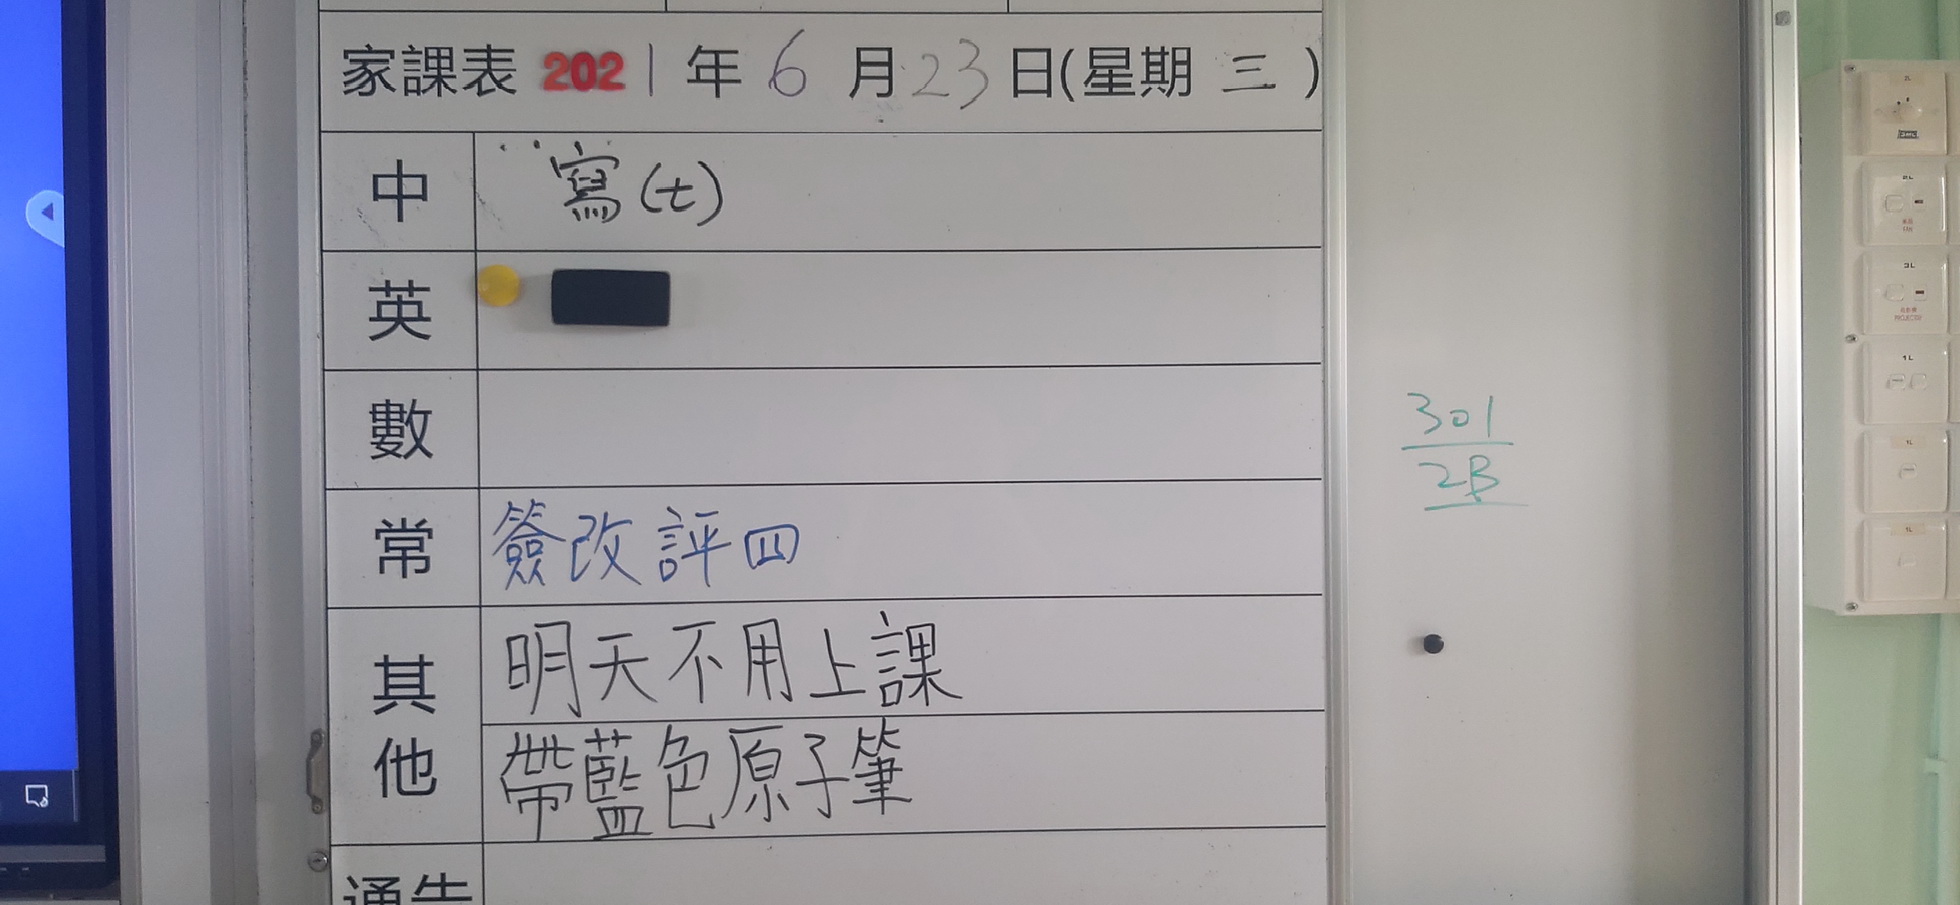 家課表 2021年6月23日(星期三)
中 寫(七)
英
數
常 簽改評四
其他 明天不用上課
帶藍色原子筆
通告
301
2B